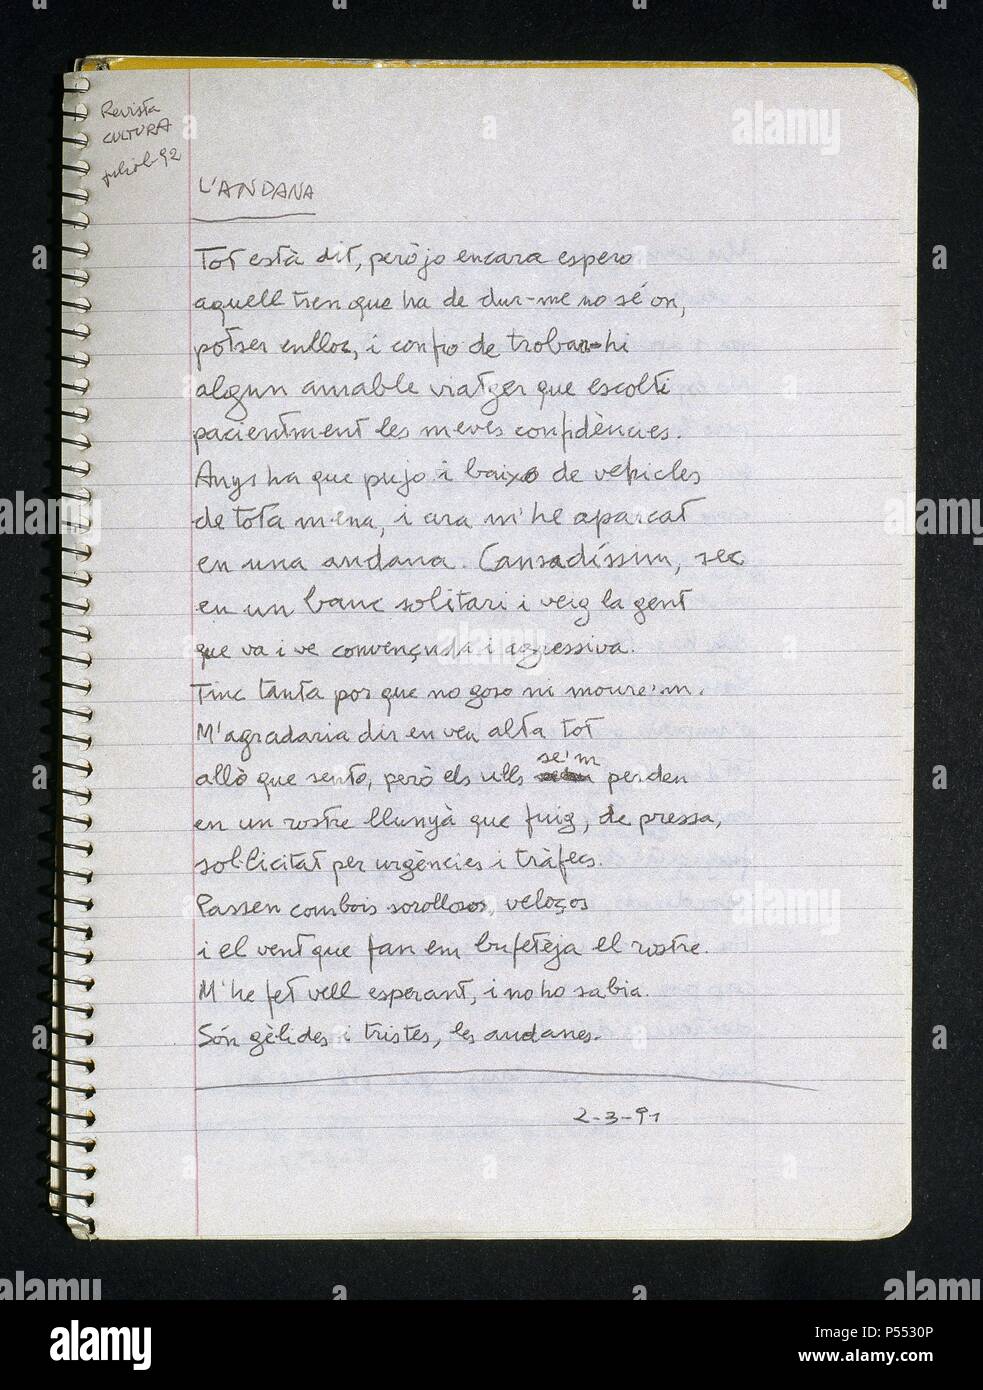 Revista
CULTURA
juliol-92
L'ANDANA
Tot està dit, però jo encara espero
aquell tren que ha de dur-me no sé on,
potser enlloc, i confio de trobar-hi
algun amable viatger que escolti
pacientment les meves confidències.
Anys ha que pujo i baixo de vehicles
de tota mena, i ara m'he aparcat
en una andana. Cansadíssim, sec
en un banc solitari i veig la gent
que va i ve convençuda i agressiva.
Tinc tanta por que no goso ni moure'm.
M'agradaria dir en veu alta tot
se'm
allò que sento, però els ulls perden
en un rostre llunyà que fuig, de pressa,
sol·licitat per urgències i tràfecs.
Passen combois sorollosos, veloços
i el vent que fan em bufeteja el rostre.
M'he fet vell esperant, i no ho sabia.
Són gèlides i tristes, les andanes.
2-3-91
alamy
alamy
Image ID: P5530P
www.alamy.com